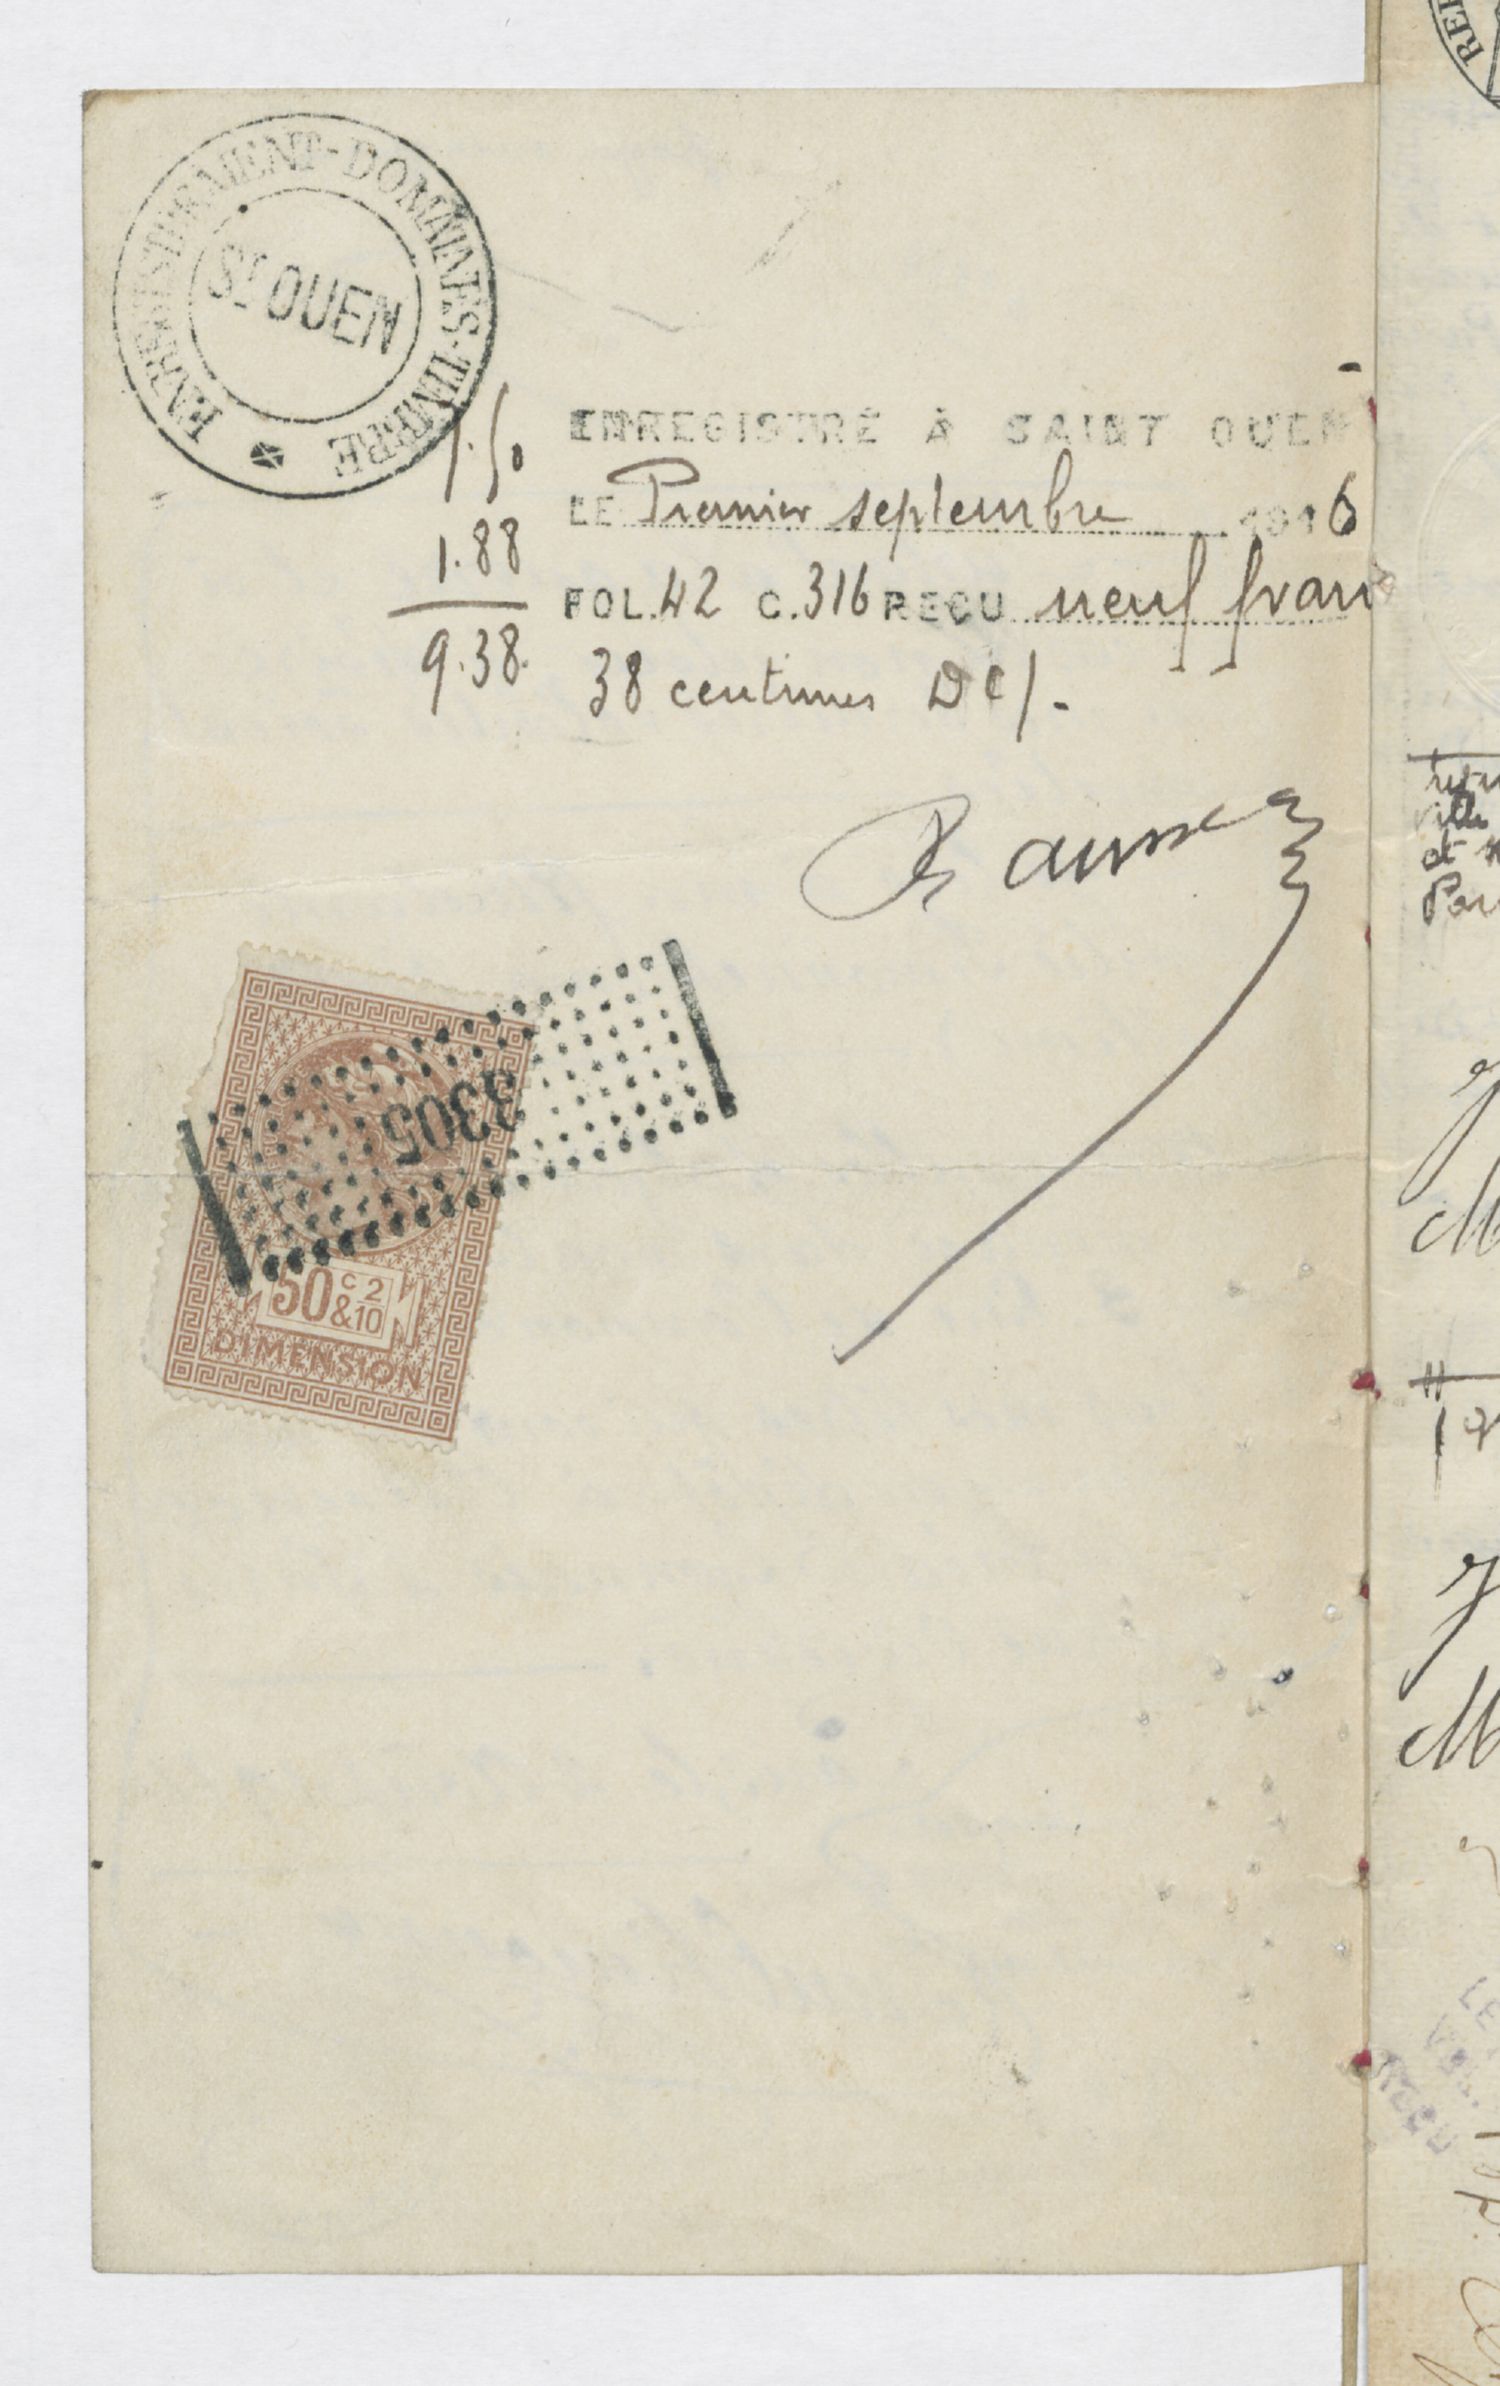 ENREGISTREMENT-DOMAINES-TIMBRE
St OUEN
7.50
1.88
9.38.
ENREGISTRÉ À SAINT OUEN
LE Premier septembre 1916
FOL. 42 C. 316 REÇU neuf franc
38 centimes
3305
50 c & 2/10
DIMENSION
ville
et